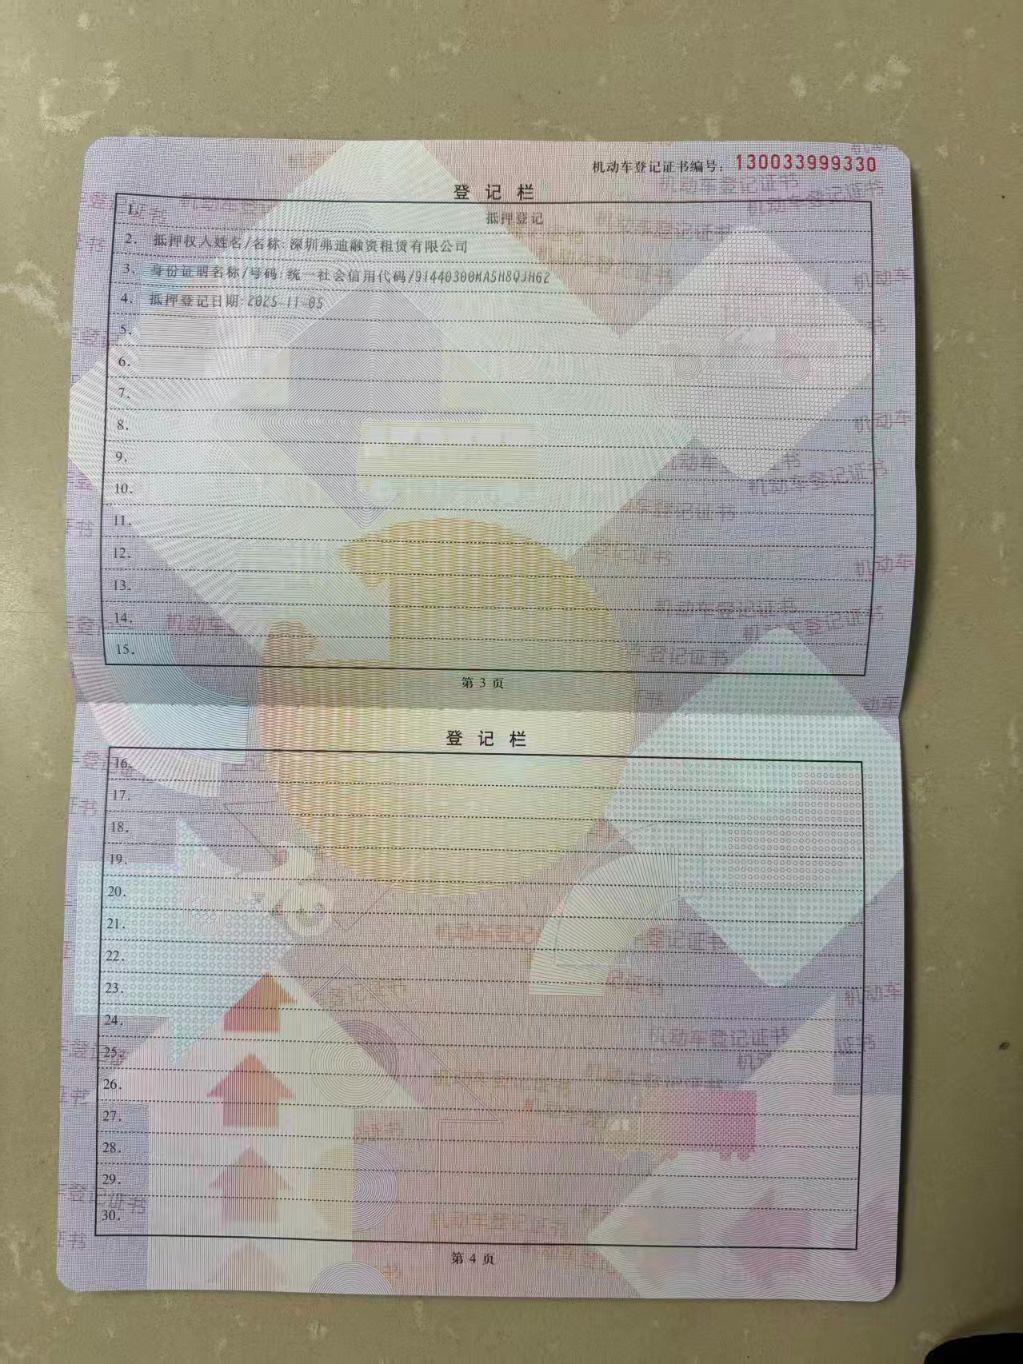 机动车登记证书编号：130033999330
登记栏
1. 抵押登记
2. 抵押权人姓名/名称:深圳弗迪融资租赁有限公司
3. 身份证明名称/号码:统一社会信用代码/91440300MA5H8QJH62
4. 抵押登记日期:2025-11-05
5.
6.
7.
8.
9.
10.
11.
12.
13.
14.
15.
第 3 页
登记栏
16.
17.
18.
19.
20.
21.
22.
23.
24.
25.
26.
27.
28.
29.
30.
第 4 页